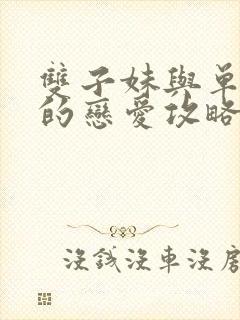 雙子妹與單
的戀愛攻略
沒錢沒車沒房